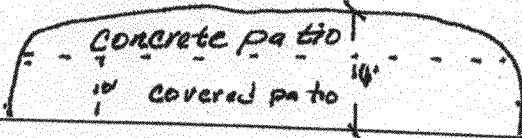 Concrete patio
10' covered patio